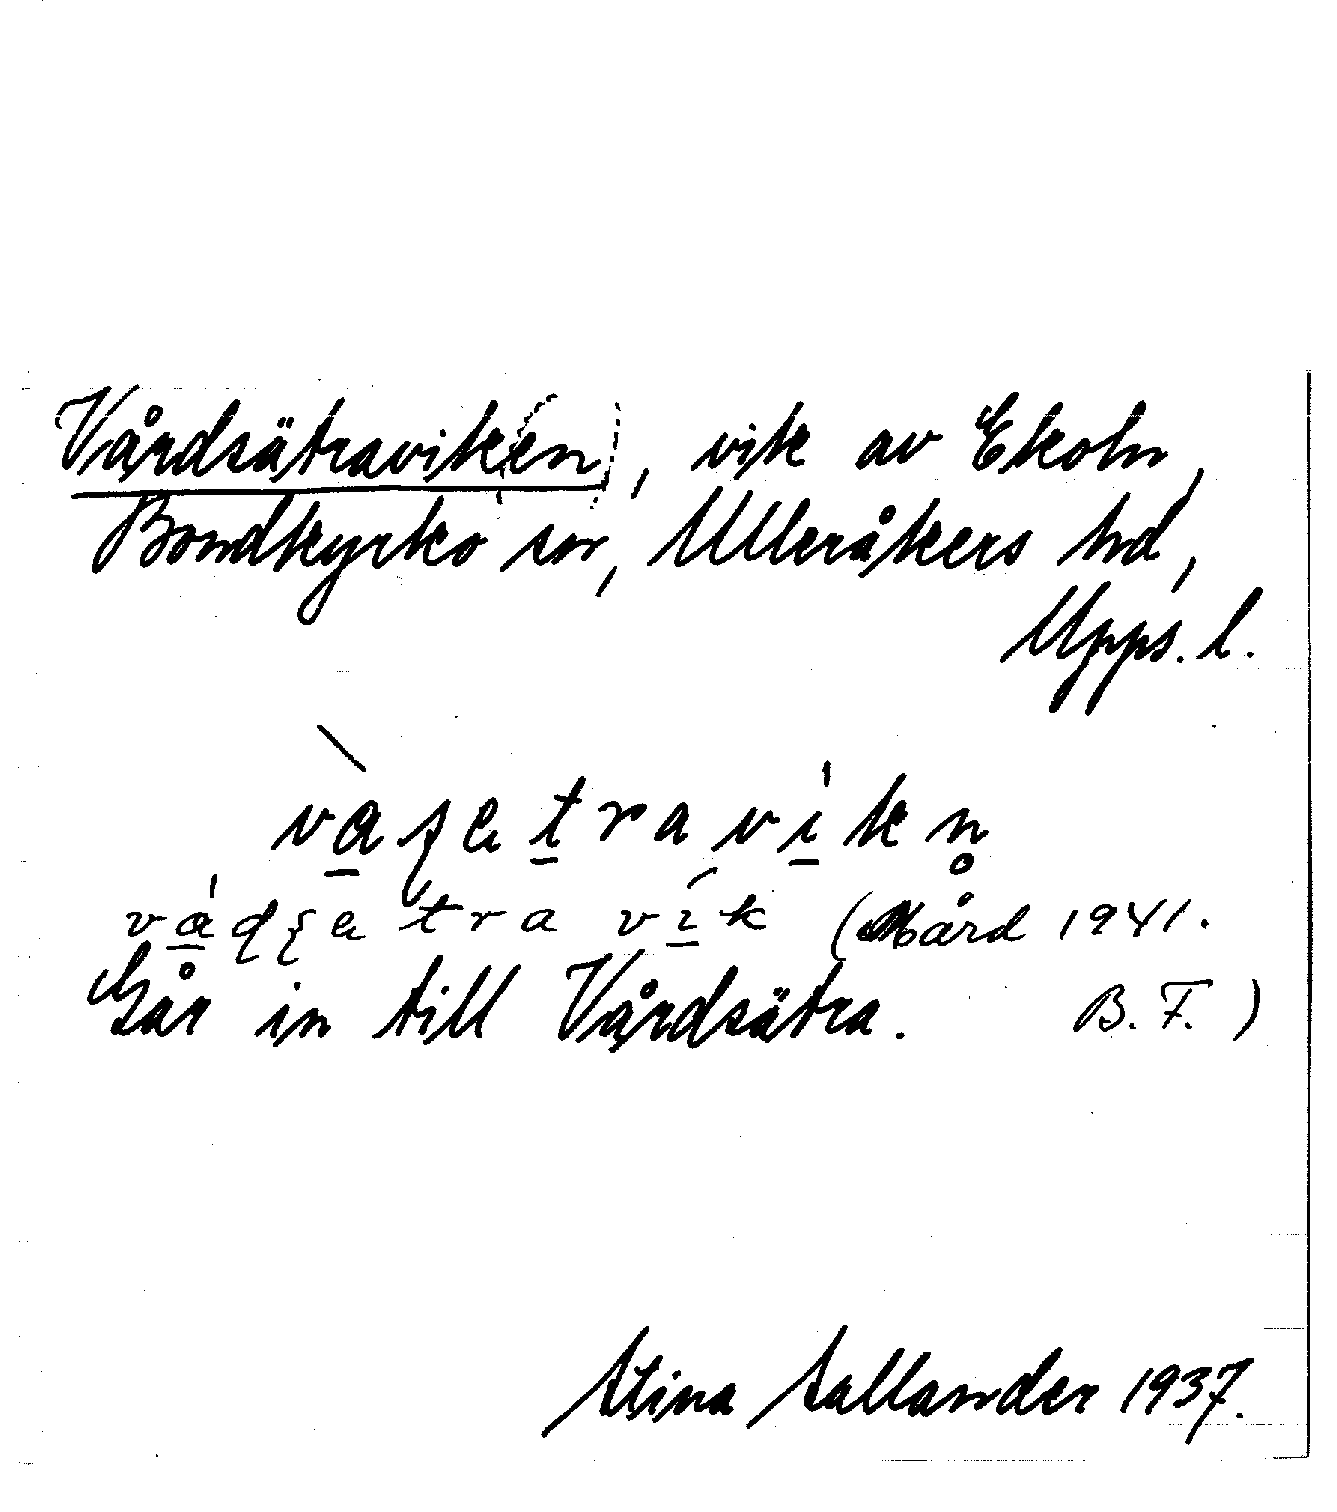 Vårdsätravik(en), vik av Ekoln,
Bondkyrko sn, Ulleråkers hd,
Upps. l.
Går in till Vårdsätra.
(Mård 1941.
B. F.)
Stina Sallander 1937.